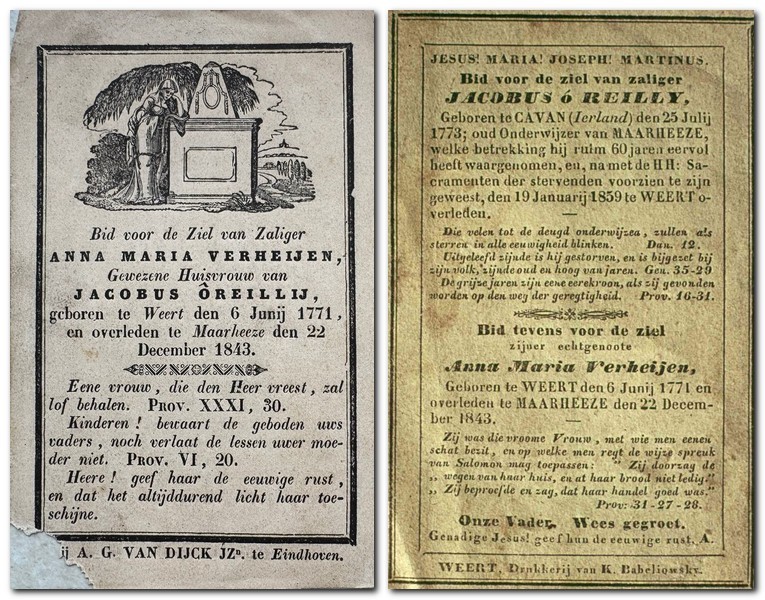 Bid voor de Ziel van Zaliger
ANNA MARIA VERHEIJEN,
Gewezene Huisvrouw van
JACOBUS ÔREILLIJ,
geboren te Weert den 6 Junij 1771,
en overleden te Maarheeze den 22
December 1843.
Eene vrouw, die den Heer vreest, zal
lof behalen. PROV. XXXI, 30.
Kinderen! bewaart de geboden uws
vaders, noch verlaat de lessen uwer moe-
der niet. PROV. VI, 20.
Heere! geef haar de eeuwige rust,
en dat het altijddurend licht haar toe-
schijne.
A. G. VAN DIJCK JZn. te Eindhoven.
JESUS! MARIA! JOSEPH! MARTINUS.
Bid voor de ziel van zaliger
JACOBUS ó REILLY,
Geboren te CAVAN (Ierland) den 25 Julij
1773; oud Onderwijzer van MAARHEEZE,
welke betrekking hij ruim 60 jaren eervol
heeft waargenomen, en, na met de HH: Sa-
cramenten der stervenden voorzien te zijn
geweest, den 19 Januarij 1859 te WEERT o-
verleden.
Die velen tot de deugd onderwijzen, zullen als
sterren in alle eeuwigheid blinken. Dan. 12.
Uitgeleefd zijnde is hij gestorven, en is bijgezet bij
zijn volk, zijnde oud en hoog van jaren. Gen. 35-29
De grijze jaren zijn eene eerekroon, als zij gevonden
worden op den weg der geregtigheid. Prov. 16-31.
Bid tevens voor de ziel
zijner echtgenoote
Anna Maria Verheijen,
Geboren te WEERT den 6 Junij 1771 en
overleden te MAARHEEZE den 22 Decem-
ber 1843.
Zij was die vroome Vrouw, met wie men eenen
schat bezit, en op welke men regt de wijze spreuk
van Salomon mag toepassen: "Zij doorzag de
„ wegen van haar huis, en at haar brood niet ledig."
„ Zij beproefde en zag, dat haar handel goed was."
Prov: 31-27-28.
Onze Vader, Wees gegroet.
Genadige Jesus! geef hun de eeuwige rust, A.
WEERT, Drukkerij van K. Babeliowsky.